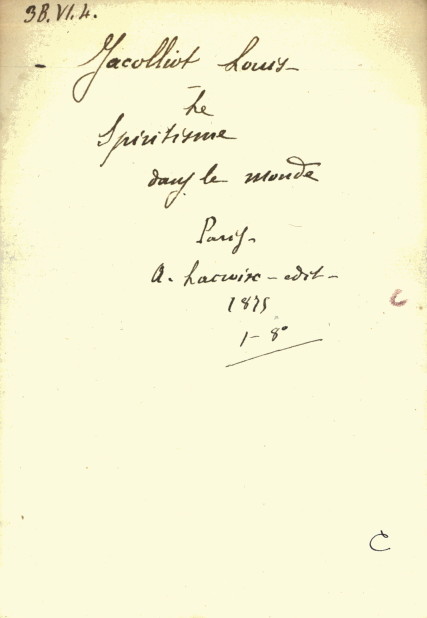 3B.VI.4.
Jacolliot Louis
Le
Spiritisme
dans le monde
Paris.
A. Lacroix - edit -
1875
1 - 8°
C
C